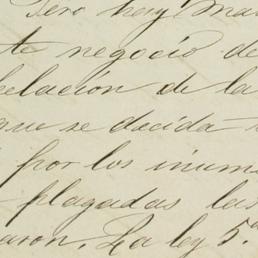 Pero hay mas
te negocio de
pelacion de la
que se decida
por los inum
plagadas las
aron. La ley 5.a